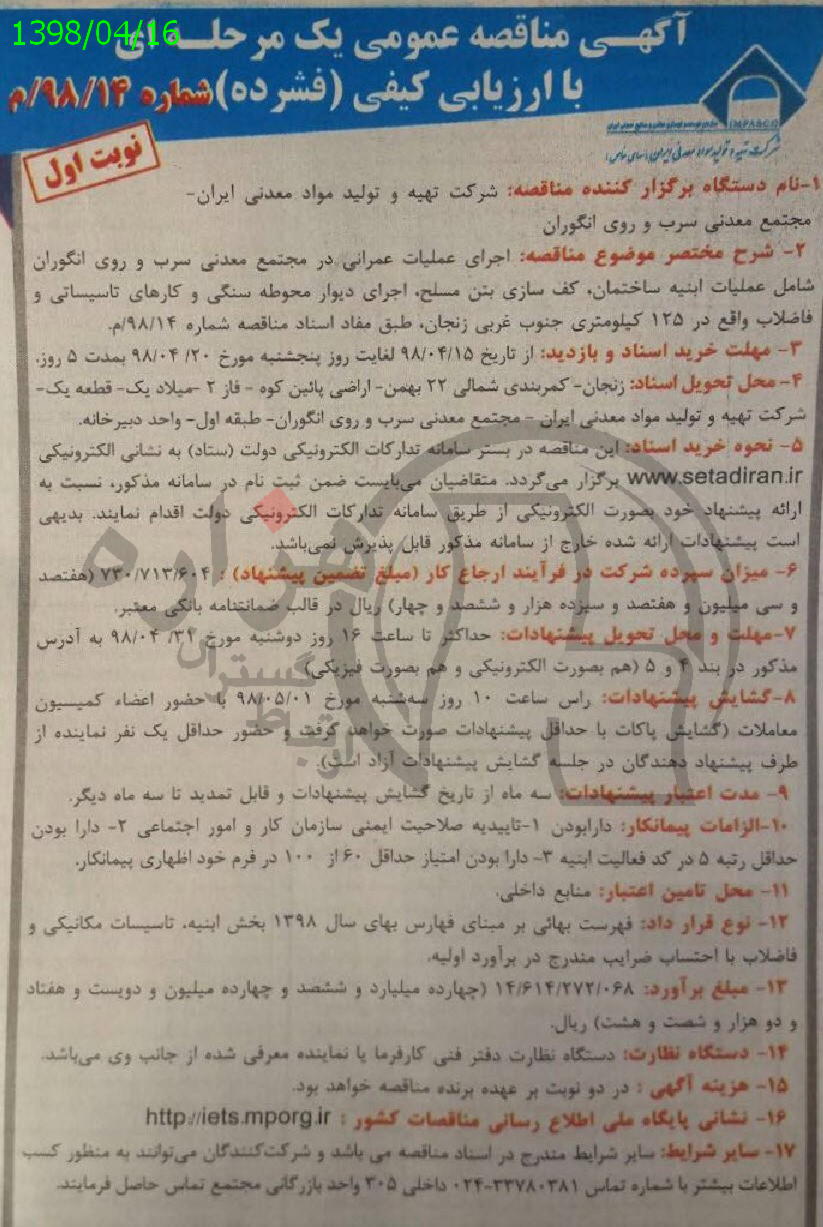 1398/04/16
آگهـی مناقصه عمومی یک مرحلـه ای
با ارزیابی کیفی (فشرده) شماره ۹۸/۱۴/م
IMPASCO
شرکت تهیه و تولید مواد معدنی ایران (سهامی خاص)
نوبت اول
۱-نام دستگاه برگزار کننده مناقصه: شرکت تهیه و تولید مواد معدنی ایران-
مجتمع معدنی سرب و روی انگوران
۲- شرح مختصر موضوع مناقصه: اجرای عملیات عمرانی در مجتمع معدنی سرب و روی انگوران
شامل عملیات ابنیه ساختمان، کف سازی بتن مسلح، اجرای دیوار محوطه سنگی و کارهای تاسیساتی و
فاضلاب واقع در ۱۲۵ کیلومتری جنوب غربی زنجان، طبق مفاد اسناد مناقصه شماره ۹۸/۱۴/م.
۳- مهلت خرید اسناد و بازدید: از تاریخ ۹۸/۰۴/۱۵ لغایت روز پنجشنبه مورخ ۲۰/ ۹۸/۰۴ بمدت ۵ روز.
۴- محل تحویل اسناد: زنجان- کمربندی شمالی ۲۲ بهمن- اراضی پائین کوه - فاز ۲ -میلاد یک- قطعه یک-
شرکت تهیه و تولید مواد معدنی ایران - مجتمع معدنی سرب و روی انگوران- طبقه اول- واحد دبیرخانه.
۵- نحوه خرید اسناد: این مناقصه در بستر سامانه تدارکات الکترونیکی دولت (ستاد) به نشانی الکترونیکی
www.setadiran.ir برگزار می‌گردد. متقاضیان می‌بایست ضمن ثبت نام در سامانه مذکور، نسبت به
ارائه پیشنهاد خود بصورت الکترونیکی از طریق سامانه تدارکات الکترونیکی دولت اقدام نمایند. بدیهی
است پیشنهادات ارائه شده خارج از سامانه مذکور قابل پذیرش نمی‌باشد.
۶- میزان سپرده شرکت در فرآیند ارجاع کار (مبلغ تضمین پیشنهاد) : ۷۳۰/۷۱۳/۶۰۴ (هفتصد
و سی میلیون و هفتصد و سیزده هزار و ششصد و چهار) ریال در قالب ضمانتنامه بانکی معتبر.
۷-مهلت و محل تحویل پیشنهادات: حداکثر تا ساعت ۱۶ روز دوشنبه مورخ ۳۱/ ۹۸/۰۴ به آدرس
مذکور در بند ۴ و ۵ (هم بصورت الکترونیکی و هم بصورت فیزیکی)
۸-گشایش پیشنهادات: راس ساعت ۱۰ روز سه‌شنبه مورخ ۹۸/۰۵/۰۱ با حضور اعضاء کمیسیون
معاملات (گشایش پاکات با حداقل پیشنهادات صورت خواهد گرفت و حضور حداقل یک نفر نماینده از
طرف پیشنهاد دهندگان در جلسه گشایش پیشنهادات آزاد است).
۹- مدت اعتبار پیشنهادات: سه ماه از تاریخ گشایش پیشنهادات و قابل تمدید تا سه ماه دیگر.
۱۰-الزامات پیمانکار: دارابودن ۱-تاییدیه صلاحیت ایمنی سازمان کار و امور اجتماعی ۲- دارا بودن
حداقل رتبه ۵ در کد فعالیت ابنیه ۳- دارا بودن امتیاز حداقل ۶۰ از ۱۰۰ در فرم خود اظهاری پیمانکار.
۱۱- محل تامین اعتبار: منابع داخلی.
۱۲- نوع قرار داد: فهرست بهائی بر مبنای فهارس بهای سال ۱۳۹۸ بخش ابنیه، تاسیسات مکانیکی و
فاضلاب با احتساب ضرایب مندرج در برآورد اولیه.
۱۳- مبلغ برآورد: ۱۴/۶۱۴/۲۷۲/۰۶۸ (چهارده میلیارد و ششصد و چهارده میلیون و دویست و هفتاد
و دو هزار و شصت و هشت) ریال.
۱۴- دستگاه نظارت: دستگاه نظارت دفتر فنی کارفرما یا نماینده معرفی شده از جانب وی می‌باشد.
۱۵- هزینه آگهی : در دو نوبت بر عهده برنده مناقصه خواهد بود.
۱۶- نشانی پایگاه ملی اطلاع رسانی مناقصات کشور : http://iets.mporg.ir
۱۷- سایر شرایط: سایر شرایط مندرج در اسناد مناقصه می باشد و شرکت‌کنندگان می‌توانند به منظور کسب
اطلاعات بیشتر با شماره تماس ۳۳۷۸۰۳۸۱-۰۲۴ داخلی ۳۰۵ واحد بازرگانی مجتمع تماس حاصل فرمایند.